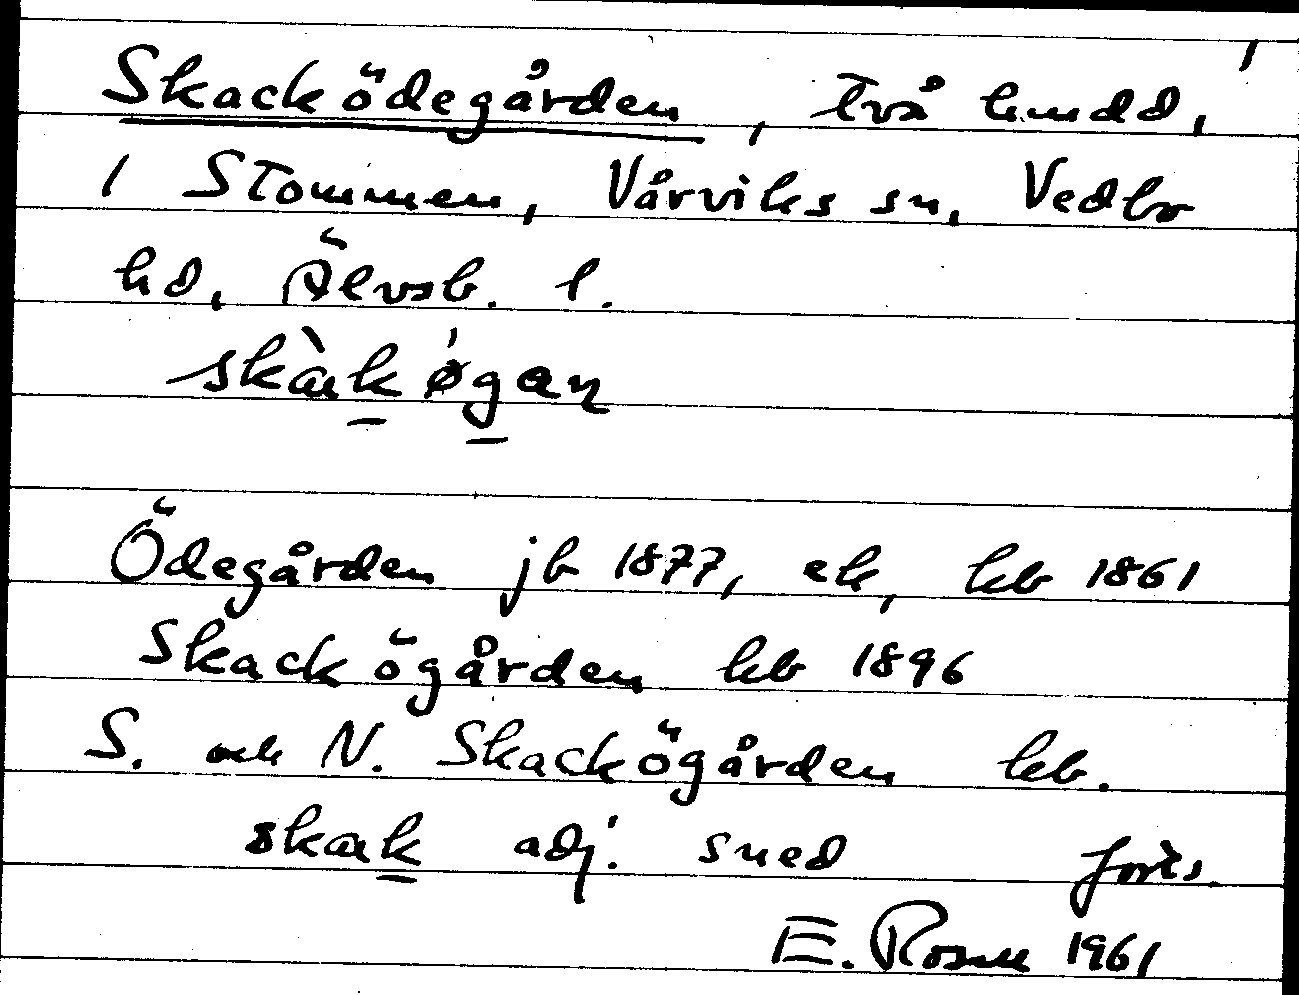 1
Skacködegården, två hmdd,
1 Stommen, Vårviks sn, Vedbo
hd, Älvsb. l.
Ödegården jb 1877, ek, kb 1861
Skackögården kb 1896
S. och N. Skackögården kb.
adj. sned forts.
E. 1961